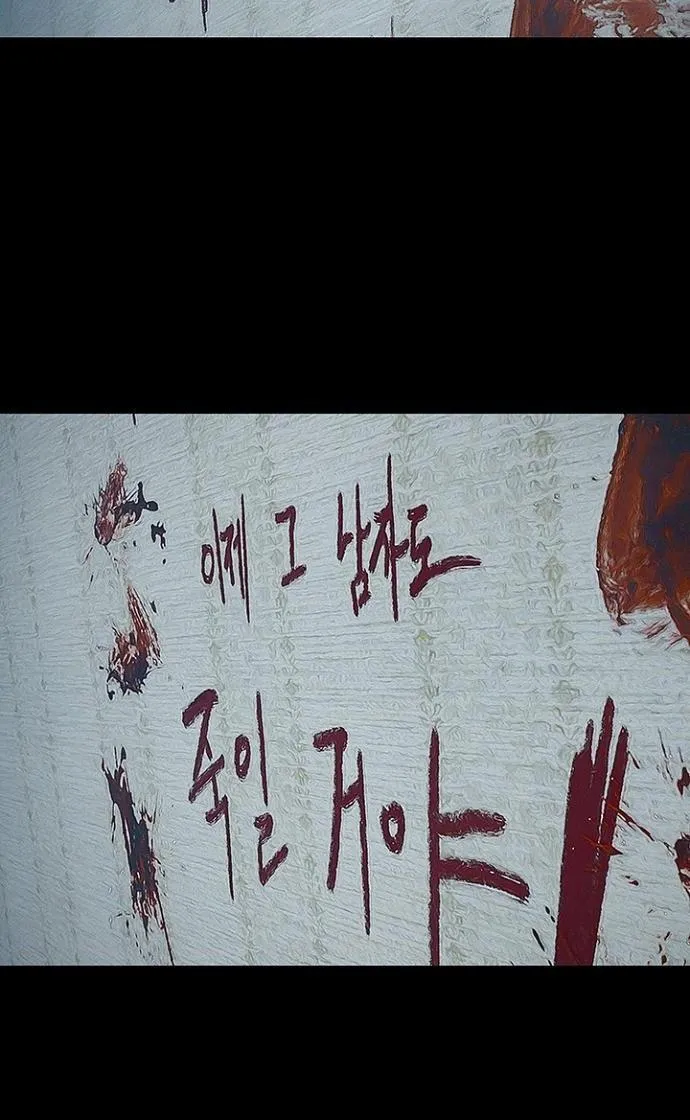 이제 그 남자도
죽일 거야